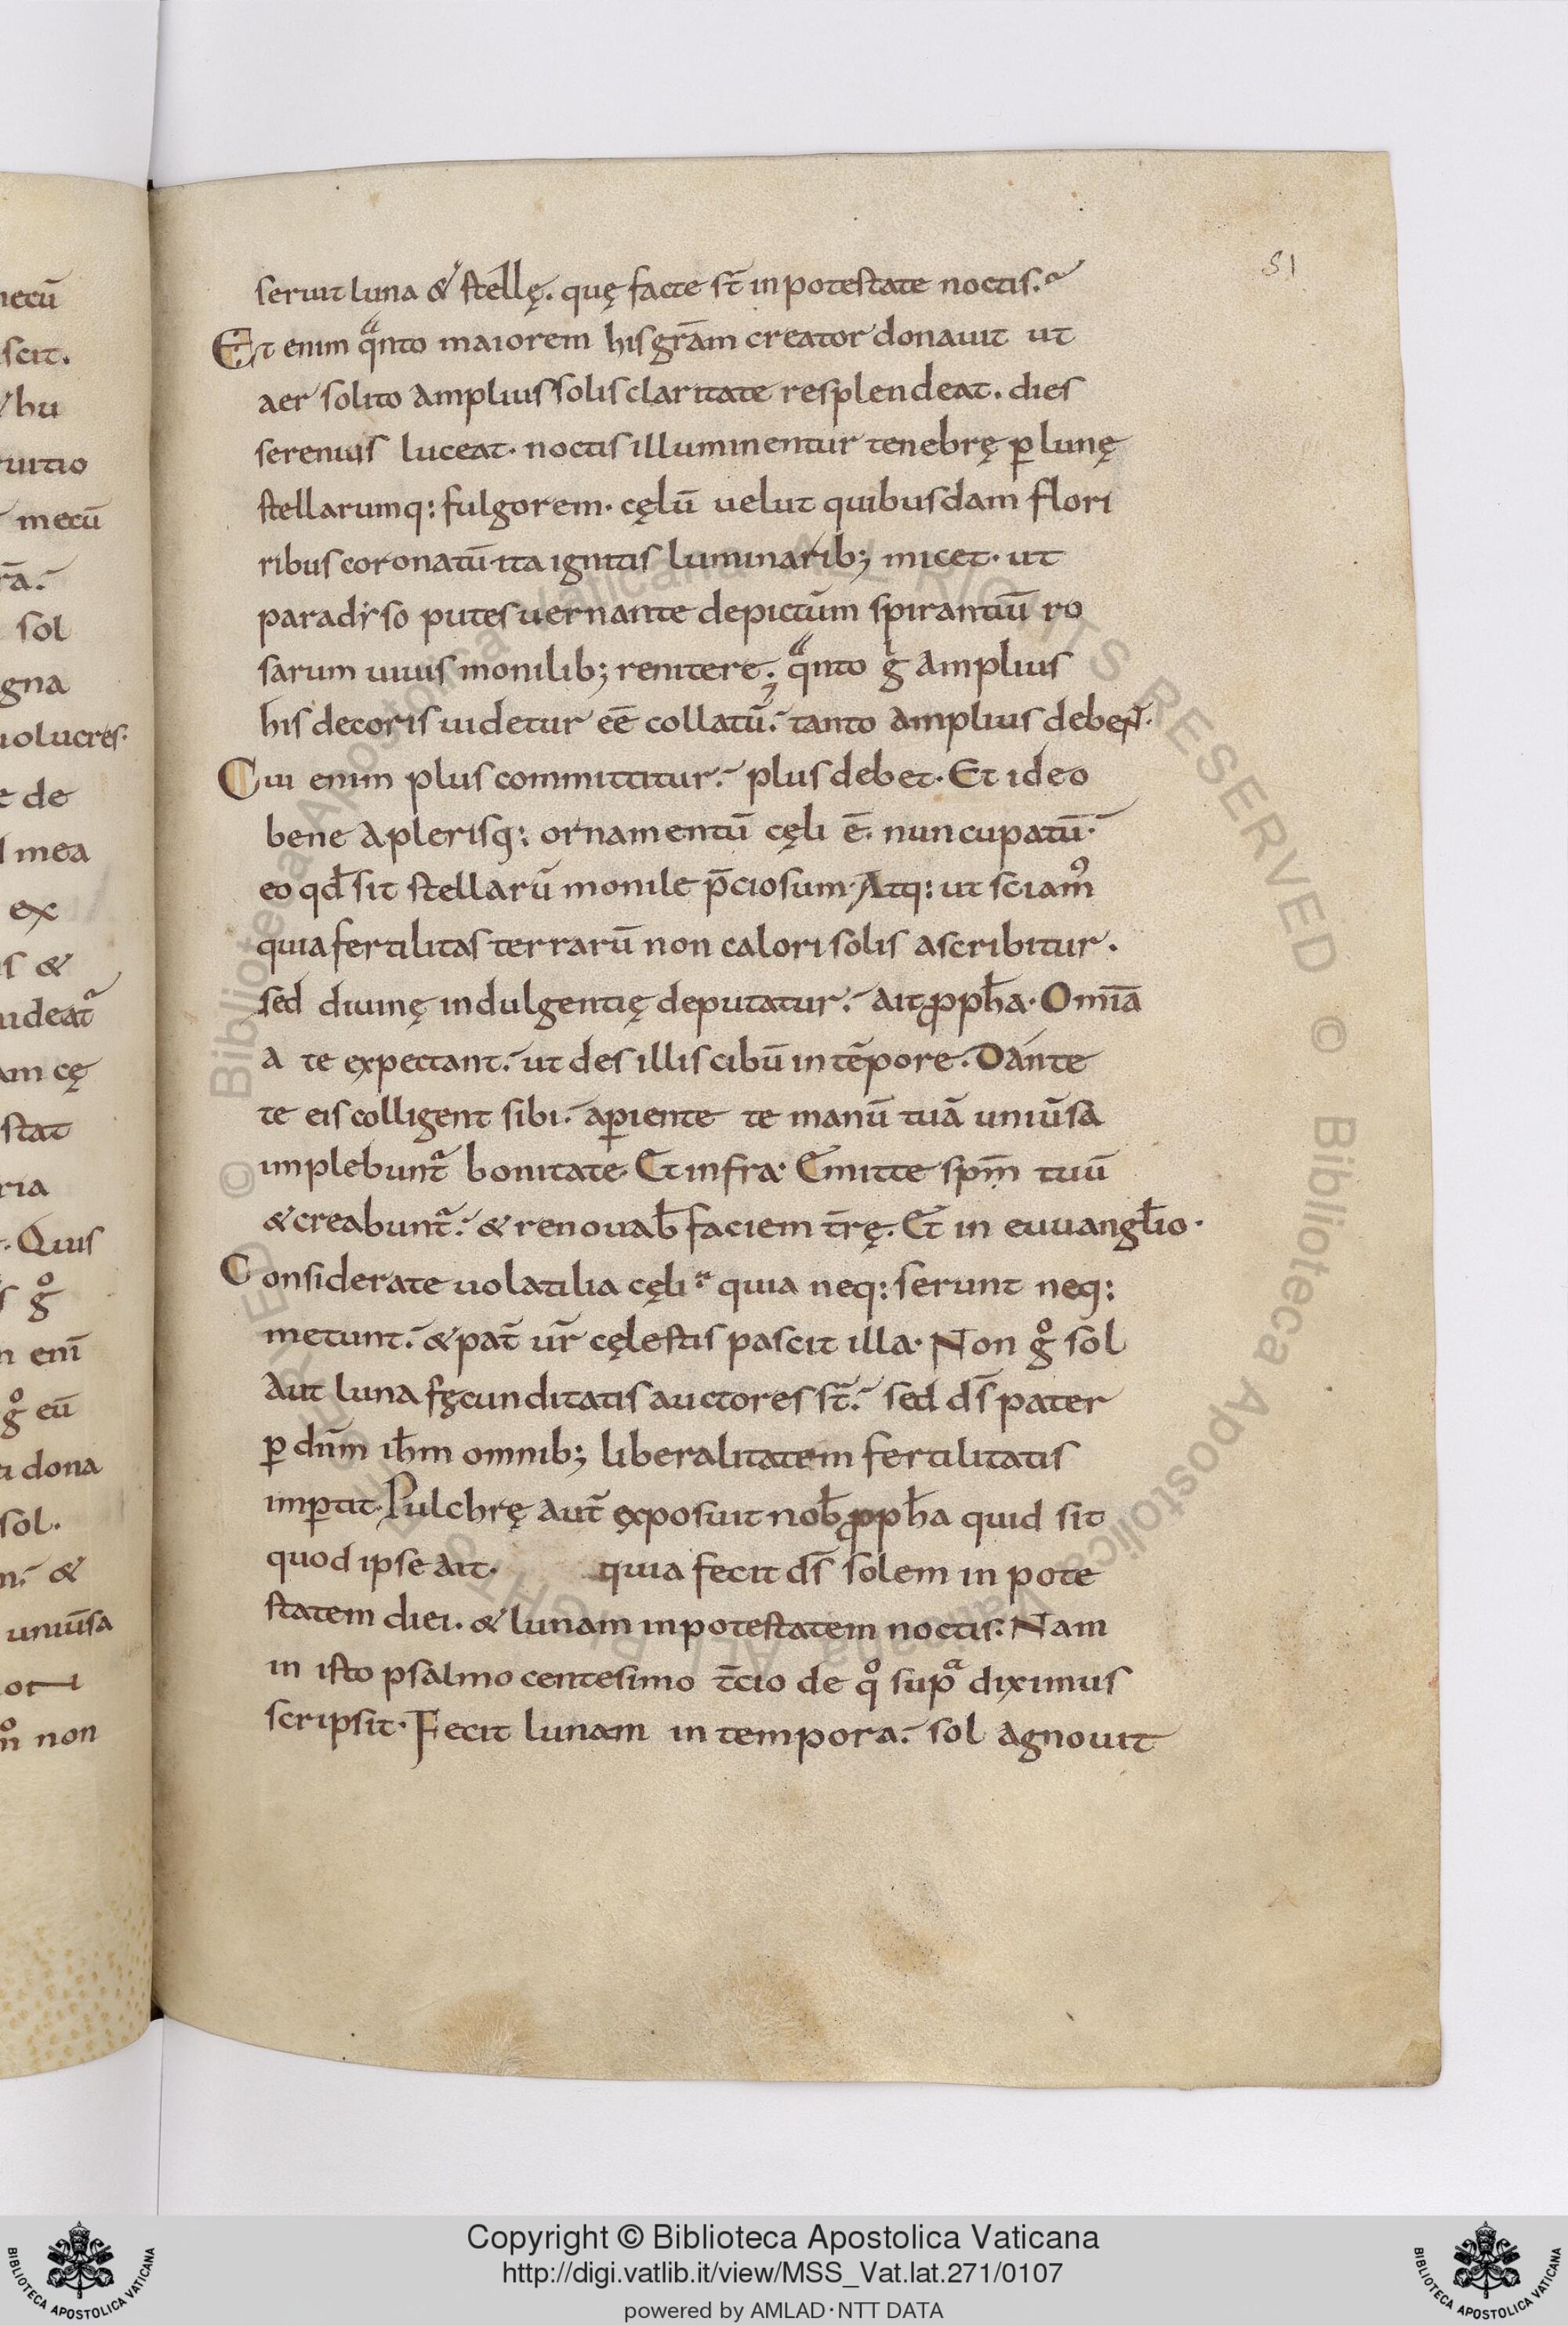 necū
scit.
hu
ruitio
mecū
rā.
sol
gna
uolucres:
e de
l mea
ex
is &
uideat᷑
am cę
stat
ria
. Quis
g̊
n enī
g̊ eū
ti dona
sol.
n. &
uniūsa
non
51
seruit luna & stellę. quę facte st̄ in potestate noctis.
Et enim qͣnto maiorem his grām creator donauit ut
aer solito amplius solis claritate resplendeat. dies
serenius luceat. noctis illuminentur tenebrę ꝑ lunę
stellarumq: fulgorem. cęlū uelut quibusdam flori
ribus coronatū ita ignitis luminarib; micet. ut
paradiso putes uernante depictūm spirantiū ro
sarum uiuis monilib; renitere; qͣnto gͥ amplius
his decoris uidetur eē collatū. tanto amplius deben̄.
Cui enim plus committitur. plus debet. Et ideo
bene a plerisq: ornamentū cęli ē. nuncupatū.
eo qd̄ sit stellarū monile p̄ciosum. Atq: ut sciam᷒
quia fertilitas terrarū non calori solis ascribitur.
sed diuinę indulgentię deputatur. ait ꝓph̄a. Omīa
a te expectant. ut des illis cibū in tēpore. Dante
te eis colligent sibi. aꝑiente te manū tuā uniūsa
implebunt᷑ bonitate. Et infra. Emitte spm̄ tuū
& creabunt᷑. & renouab̄ faciem t̄rę. Et in euuangl̄io.
Considerate uolatilia cęli quia neq: serunt neq:
metunt. & pat̄ ur̄ cęlestis pascit illa. Non g̊ sol
aut luna fęcunditatis auctores st̄. sed ds̄ pater
ꝑ dnm̄ ih̄m omnib; liberalitatem fertilitatis
imꝑtit. Pulchrę aut̄ exposuit nob̄ ꝓpph̄a quid sit
quod ipse ait. quia fecit ds̄ solem in pote
statem diei. & lunam in potestatem noctis. Nam
in isto psalmo centesimo t̄cio de q̊ supͣ diximus
scripsit. Fecit lunam in tempora. sol agnouit
© Biblioteca Apostolica Vaticana ALL RIGHTS RESERVED © Biblioteca Apostolica Vaticana ALL RIGHTS RESERVED
Copyright © Biblioteca Apostolica Vaticana
http://digi.vatlib.it/view/MSS_Vat.lat.271/0107
powered by AMLAD·NTT DATA
BIBLIOTECA APOSTOLICA VATICANA
BIBLIOTECA APOSTOLICA VATICANA